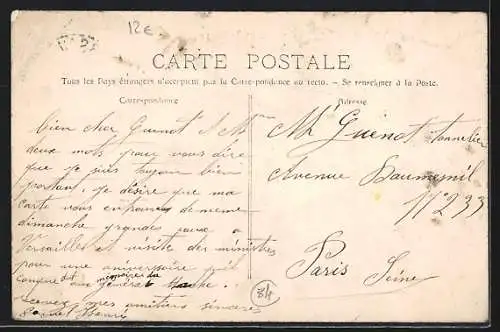 12€
CARTE POSTALE
Tous les Pays étrangers n'acceptent pas la Correspondance au recto. — Se renseigner à la Poste.
Correspondance
Adresse
bien cher Guenot & Mme
deux mots pour vous dire
que je suis toujours bien
portant. Je désire que ma
carte vous en de meme
dimanche grandes a
Versailles et visite des ministres
pour une aniversaire
General Hoche
recevez mes amitiers sinceres
Henri
Mr Guenot tonnelier
Avenue Daumesnil
N° 233
Paris
Seine
84